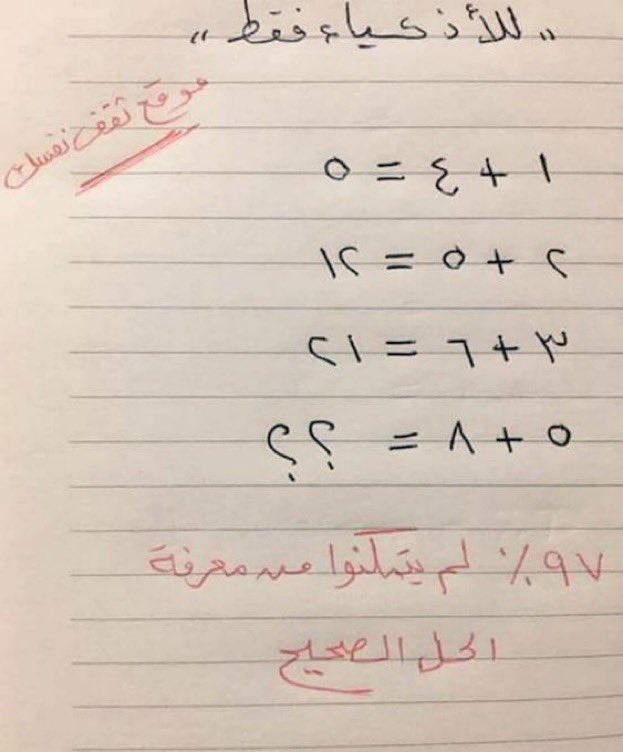 ,, للأذكياء فقط ,,
موقع ثقف نفسك
١ + ٤ = ٥
٢ + ٥ = ١٢
٣ + ٦ = ٢١
٥ + ٨ = ؟؟
٩٧٪ لم يتمكنوا من معرفة
الحل الصحيح